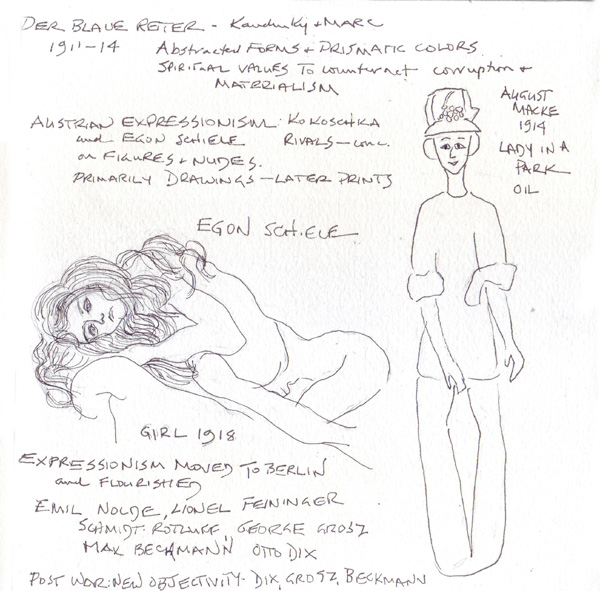 DER BLAUE REITER - Kandinsky + MARC
1911-14 Abstracted FORMS + PRISMATIC COLORS.
SPIRITUAL VALUES TO counteract corruption +
MATERIALISM
AUGUST
MACKE
1914
LADY IN A
PARK
OIL
AUSTRIAN EXPRESSIONISM: KOKOSCHKA
and EGON SCHIELE RIVALS - conc.
on FIGURES + NUDES.
PRIMARILY DRAWINGS - LATER PRINTS
EGON SCHIELE
GIRL 1918
EXPRESSIONISM MOVED TO BERLIN
and FLOURISHED
EMIL NOLDE, LIONEL FEININGER
SCHMIDT-ROTLUFF, GEORGE GROSZ
MAX BECKMANN OTTO DIX
POST WAR: NEW OBJECTIVITY - DIX, GROSZ, BECKMANN